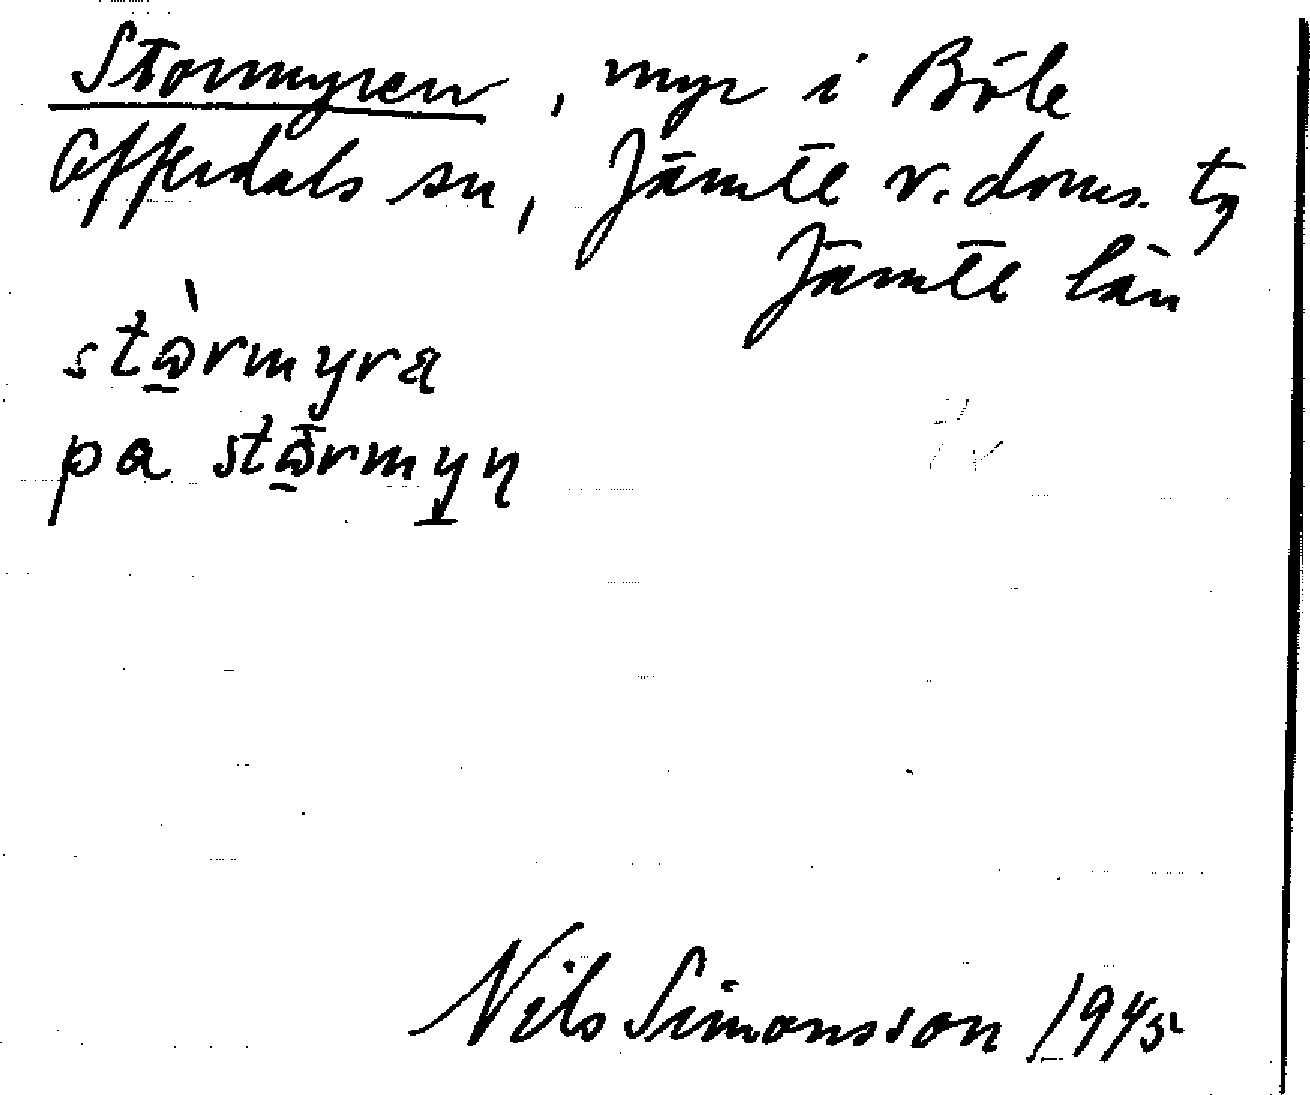 Stormyren, myr i Böle
Offerdals sn, Jämtl v. doms. tg
Jämtl län
stὼ̲rmyra
pa stω̲̄rmy̲ŋ
Nils Simonsson 1945